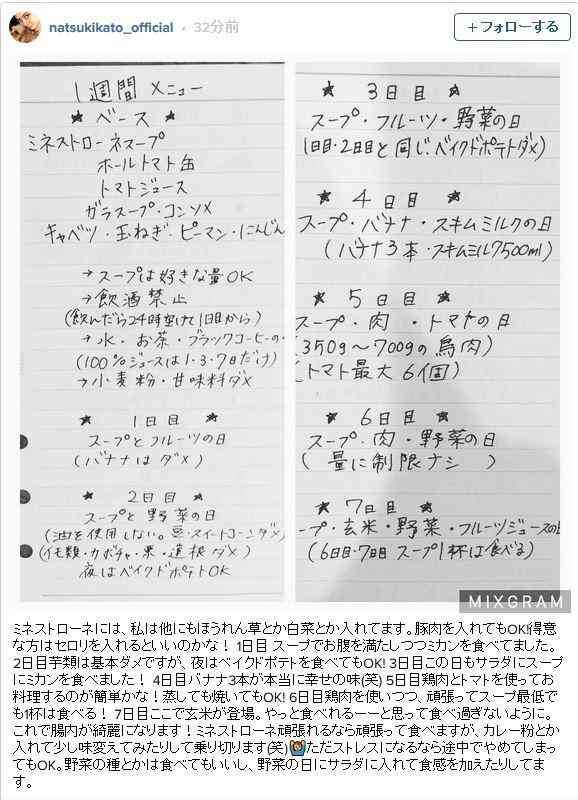 natsukikato_official
32分前
+フォローする
1週間 メニュー
★ ベース ★
ミネストローネスープ
ホールトマト缶
トマトジュース
ガラスープ・コンソメ
キャベツ・玉ねぎ・ピーマン・にんじん
→スープは好きな量OK
→飲酒禁止
(飲んだら24時空けて1日目から)
→水・お茶・ブラックコーヒーの
(100%ジュースは1・3・7日だけ)
→小麦粉・甘味料ダメ
★ 1日目 ★
スープとフルーツの日
(バナナはダメ)
★ 2日目 ★
スープと野菜の日
(油を使用しない。豆・スイートコーンダメ)
(イモ類・カボチャ・栗・蓮根ダメ)
夜はベイクドポテトOK
★ 3日目 ★
スープ・フルーツ・野菜の日
(1日目・2日目と同じ。ベイクドポテトダメ)
★ 4日目 ★
スープ・バナナ・スキムミルクの日
(バナナ3本・スキムミルク500ml)
★ 5日目 ★
スープ・肉・トマトの日
(350g〜700gの鳥肉)
(トマト最大6個)
★ 6日目 ★
スープ・肉・野菜の日
(量に制限ナシ)
★ 7日目 ★
ープ・玄米・野菜・フルーツジュースの日
(6日目・7日目 スープ1杯は食べる)
MIXGRAM
ミネストローネには、私は他にもほうれん草とか白菜とか入れてます。豚肉を入れてもOK!得意
な方はセロリを入れるといいのかな! 1日目 スープでお腹を満たしつつミカンを食べてました。
2日目芋類は基本ダメですが、夜はベイクドポテトを食べてもOK! 3日目この日もサラダにスープ
にミカンを食べました! 4日目バナナ3本が本当に幸せの味(笑) 5日目鶏肉とトマトを使ってお
料理するのが簡単かな!蒸しても焼いてもOK! 6日目鶏肉を使いつつ、頑張ってスープ最低で
も1杯は食べる! 7日目ここで玄米が登場。やっと食べれるーーと思って食べ過ぎないように。
これで腸内が綺麗になります!ミネストローネ頑張れるなら頑張って食べますが、カレー粉とか
入れて少し味変えてみたりして乗り切ります(笑)ただストレスになるなら途中でやめてしまっ
てもOK。野菜の種とかは食べてもいいし、野菜の日にサラダに入れて食感を加えたりしてま
す。